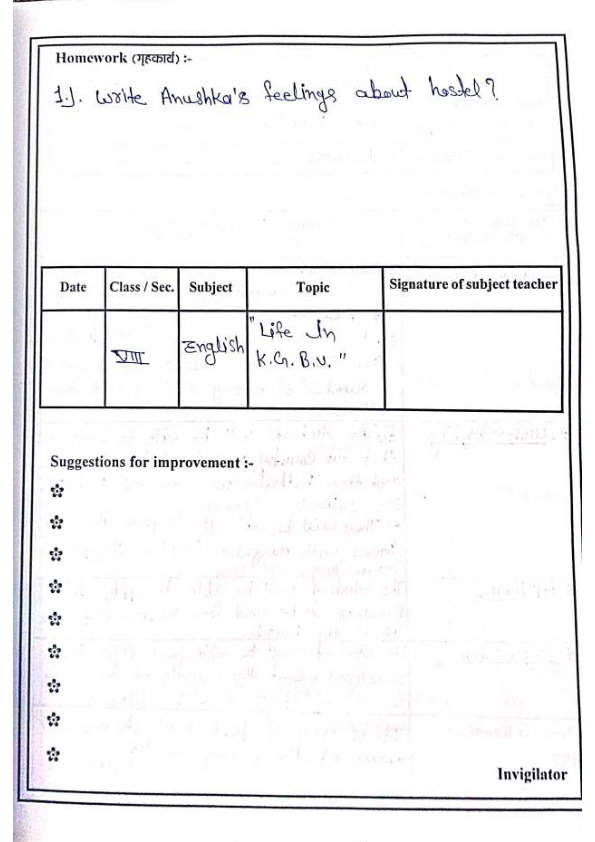 Homework (गृहकार्य) :-
1.). Write Anushka's feelings about hostel?
Date Class / Sec. Subject Topic Signature of subject teacher
VIII English "Life In
K.G.B.V."
Suggestions for improvement :-
Invigilator